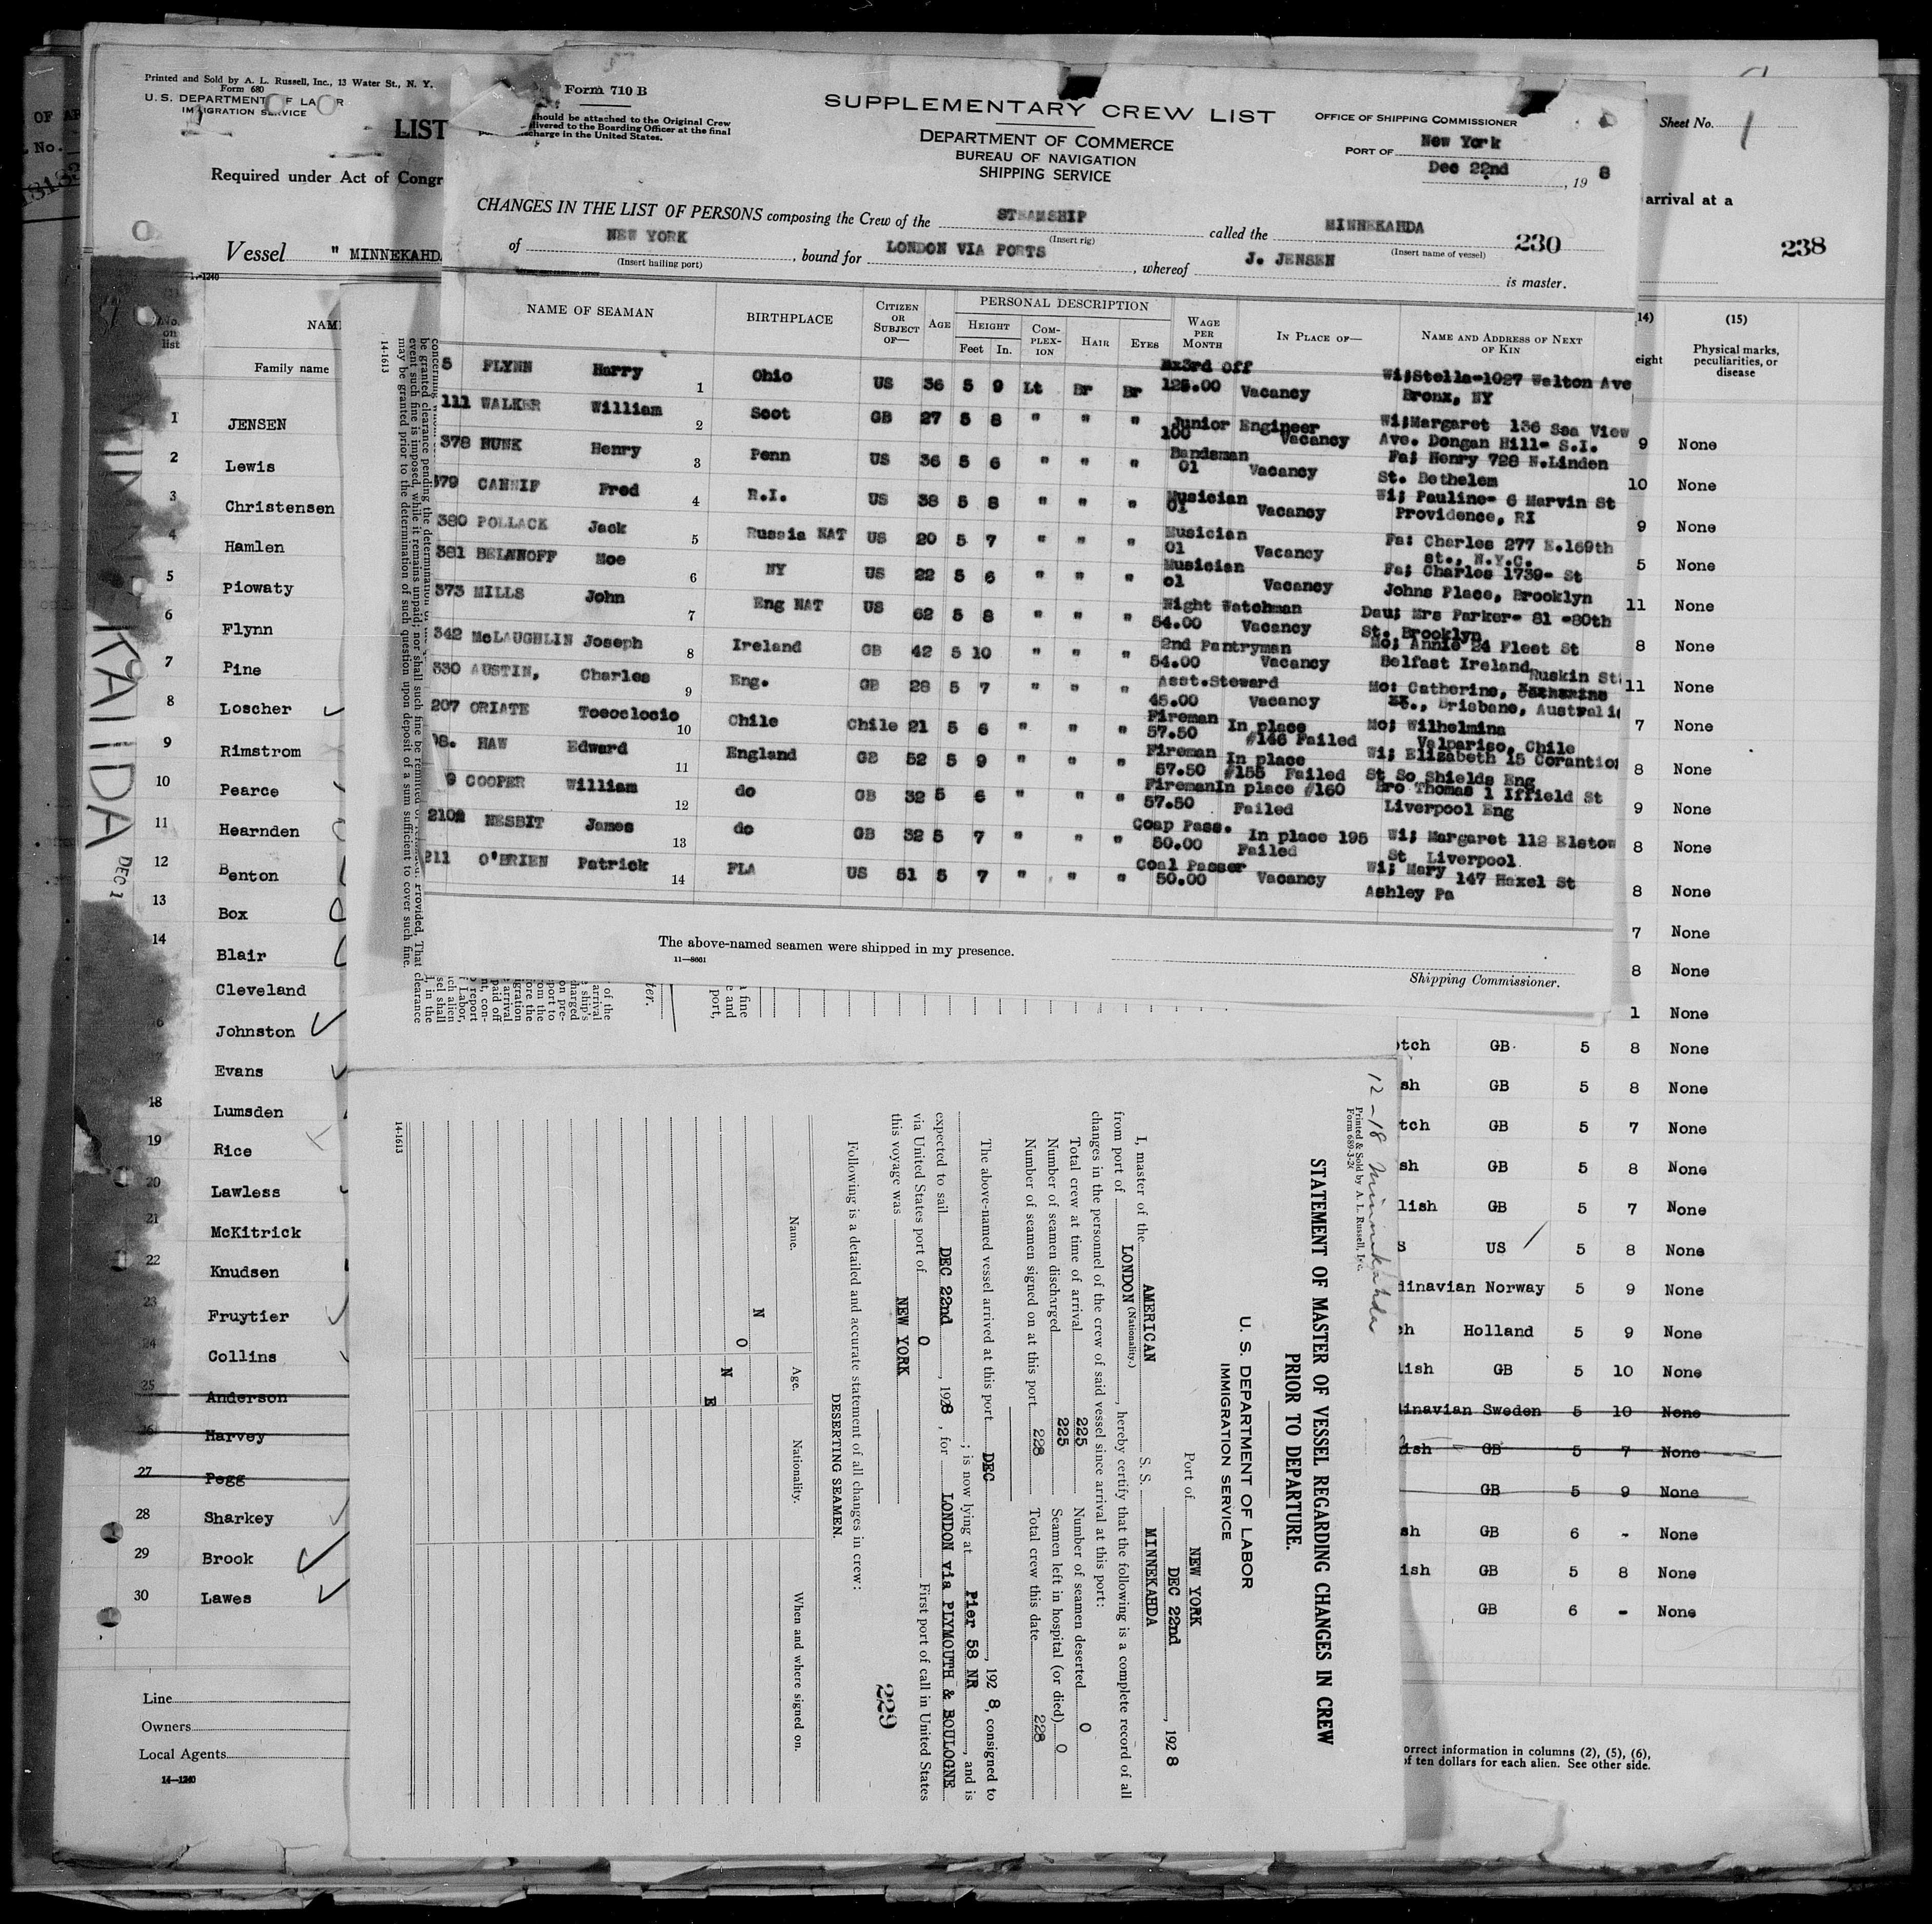 Printed and Sold by A. L. Russell, Inc., 13 Water St., N. Y.
Form 680
U. S. DEPARTMENT OF LABOR
IMMIGRATION SERVICE
LIST
Required under Act of Congr
Vessel " MINNEKAHDA
Sheet No. 1
arrival at a
238
Form 710 B
should be attached to the Original Crew
delivered to the Boarding Officer at the final
discharge in the United States.
SUPPLEMENTARY CREW LIST
DEPARTMENT OF COMMERCE
BUREAU OF NAVIGATION
SHIPPING SERVICE
OFFICE OF SHIPPING COMMISSIONER
PORT OF New York
Dec 22nd, 19 8
CHANGES IN THE LIST OF PERSONS composing the Crew of the STEAMSHIP called the MINNEKAHDA
(Insert rig) (Insert name of vessel) 230
of NEW YORK, bound for LONDON VIA PORTS, whereof J. JENSEN is master.
(Insert hailing port)
NAME OF SEAMAN BIRTHPLACE CITIZEN OR SUBJECT OF— AGE PERSONAL DESCRIPTION HEIGHT Feet In. COMPLEXION HAIR EYES WAGE PER MONTH IN PLACE OF— NAME AND ADDRESS OF NEXT OF KIN
5 FLYNN Harry 1 Ohio US 36 5 9 Lt Br Br Ex3rd Off 125.00 Vacancy Wi;Stella-1027 Walton Ave Bronx, NY
111 WALKER William 2 Scot GB 27 5 8 " " " Junior Engineer 100 Vacancy Wi;Margaret 136 Sea View Ave. Dongan Hill- S.I.
378 HUNK Henry 3 Penn US 36 5 6 " " " Bandsman 01 Vacancy Fa; Henry 728 N.Linden St. Bethelem
379 CANNIF Fred 4 R.I. US 38 5 8 " " " Musician 01 Vacancy Wi; Pauline- 6 Marvin St Providence, RI
380 POLLACK Jack 5 Russia NAT US 20 5 7 " " " Musician 01 Vacancy Fa: Charles 277 E.169th st., N.Y.C.
381 BELANOFF Moe 6 NY US 22 5 6 " " " Musician 01 Vacancy Fa; Charles 1739- St Johns Place, Brooklyn
373 MILLS John 7 Eng NAT US 62 5 8 " " " Night Watchman 54.00 Vacancy Dau; Mrs Parker- 81 -80th St. Brooklyn
342 McLAUGHLIN Joseph 8 Ireland GB 42 5 10 " " " 2nd Pantryman 54.00 Vacancy Mo; Annie 24 Fleet St Belfast Ireland
330 AUSTIN, Charles 9 Eng. GB 28 5 7 " " " Asst.Steward 45.00 Vacancy Mo: Catherine, Ruskin St., Brisbane, Australia
207 ORIATE Tococlocio 10 Chile Chile 21 5 6 " " " Fireman 57.50 In place #146 Failed Mo; Wilhelmina Valpariso, Chile
08. HAW Edward 11 England GB 52 5 9 " " " Fireman 57.50 In place #155 Failed Wi; Elizabeth 15 Corantion St So Shields Eng
9 COOPER William 12 do GB 32 5 6 " " " Fireman 57.50 In place #160 Failed Bro Thomas 1 Iffield St Liverpool Eng
210 NESBIT James 13 do GB 32 5 7 " " " Coap Pass. 50.00 In place 195 Failed Wi; Margaret 112 Elstow St Liverpool
211 O'BRIEN Patrick 14 FLA US 51 5 7 " " " Coal Passer 50.00 Vacancy Wi; Mary 147 Haxel St Ashley Pa
The above-named seamen were shipped in my presence.
11—8661
Shipping Commissioner.
No. on list
NAM
Family name
1 JENSEN
2 Lewis
3 Christensen
4 Hamlen
5 Piowaty
6 Flynn
7 Pine
8 Loscher
9 Rimstrom
10 Pearce
11 Hearnden
12 Benton
13 Box
14 Blair
Cleveland
Johnston
Evans
18 Lumsden
19 Rice
20 Lawless
21 McKitrick
22 Knudsen
23 Fruytier
24 Collins
25 Anderson
26 Harvey
27 Pegg
28 Sharkey
29 Brook
30 Lawes
Line
Owners
Local Agents
14—1240
(14) (15)
eight
Physical marks, peculiarities, or disease
9 None
10 None
9 None
5 None
11 None
8 None
11 None
7 None
8 None
9 None
8 None
8 None
7 None
8 None
1 None
otch GB 5 8 None
sh GB 5 8 None
tch GB 5 7 None
sh GB 5 8 None
lish GB 5 7 None
S US 5 8 None
dinavian Norway 5 9 None
ch Holland 5 9 None
lish GB 5 10 None
dinavian Sweden 5 10 None
ish GB 5 7 None
GB 5 9 None
sh GB 6 - None
ish GB 5 8 None
GB 6 - None
orrect information in columns (2), (5), (6),
of ten dollars for each alien. See other side.
12-18 Minnekahda
Printed & Sold by A. L. Russell, Inc.
Form 689-
STATEMENT OF MASTER OF VESSEL REGARDING CHANGES IN CREW
PRIOR TO DEPARTURE.
U. S. DEPARTMENT OF LABOR
IMMIGRATION SERVICE
Port of NEW YORK
DEC 22nd, 192 8
I, master of the AMERICAN S. S. MINNEKAHDA
(Nationality.)
from port of LONDON, hereby certify that the following is a complete record of all
changes in the personnel of the crew of said vessel since arrival at this port:
Total crew at time of arrival 225 Number of seamen deserted 0
Number of seamen discharged 225 Seamen left in hospital (or died) 0
Number of seamen signed on at this port 228 Total crew this date 228
The above-named vessel arrived at this port DEC, 192 8, consigned to
; is now lying at Pier 58 NR, and is
expected to sail DEC 22nd, 1928, for LONDON via PLYMOUTH & BOULOGNE
via United States port of 0 First port of call in United States
this voyage was NEW YORK
229
Following is a detailed and accurate statement of all changes in crew:
DESERTING SEAMEN.
Name. Age. Nationality. When and where signed on.
N O N E
14-1613
14-1613
KAHDA
DEC 1